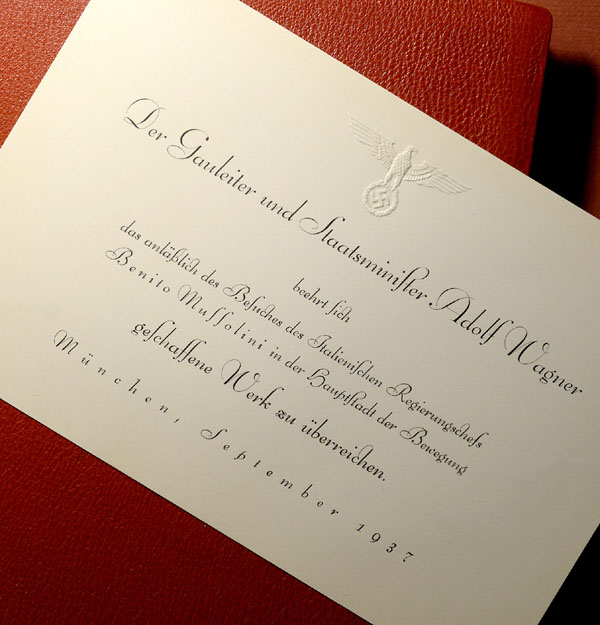 Der Gauleiter und Staatsminister Adolf Wagner
beehrt sich
das anläßlich des Besuches des Italienischen Regierungschefs
Benito Mussolini in der Hauptstadt der Bewegung
geschaffene Werk zu überreichen.
München, September 1937